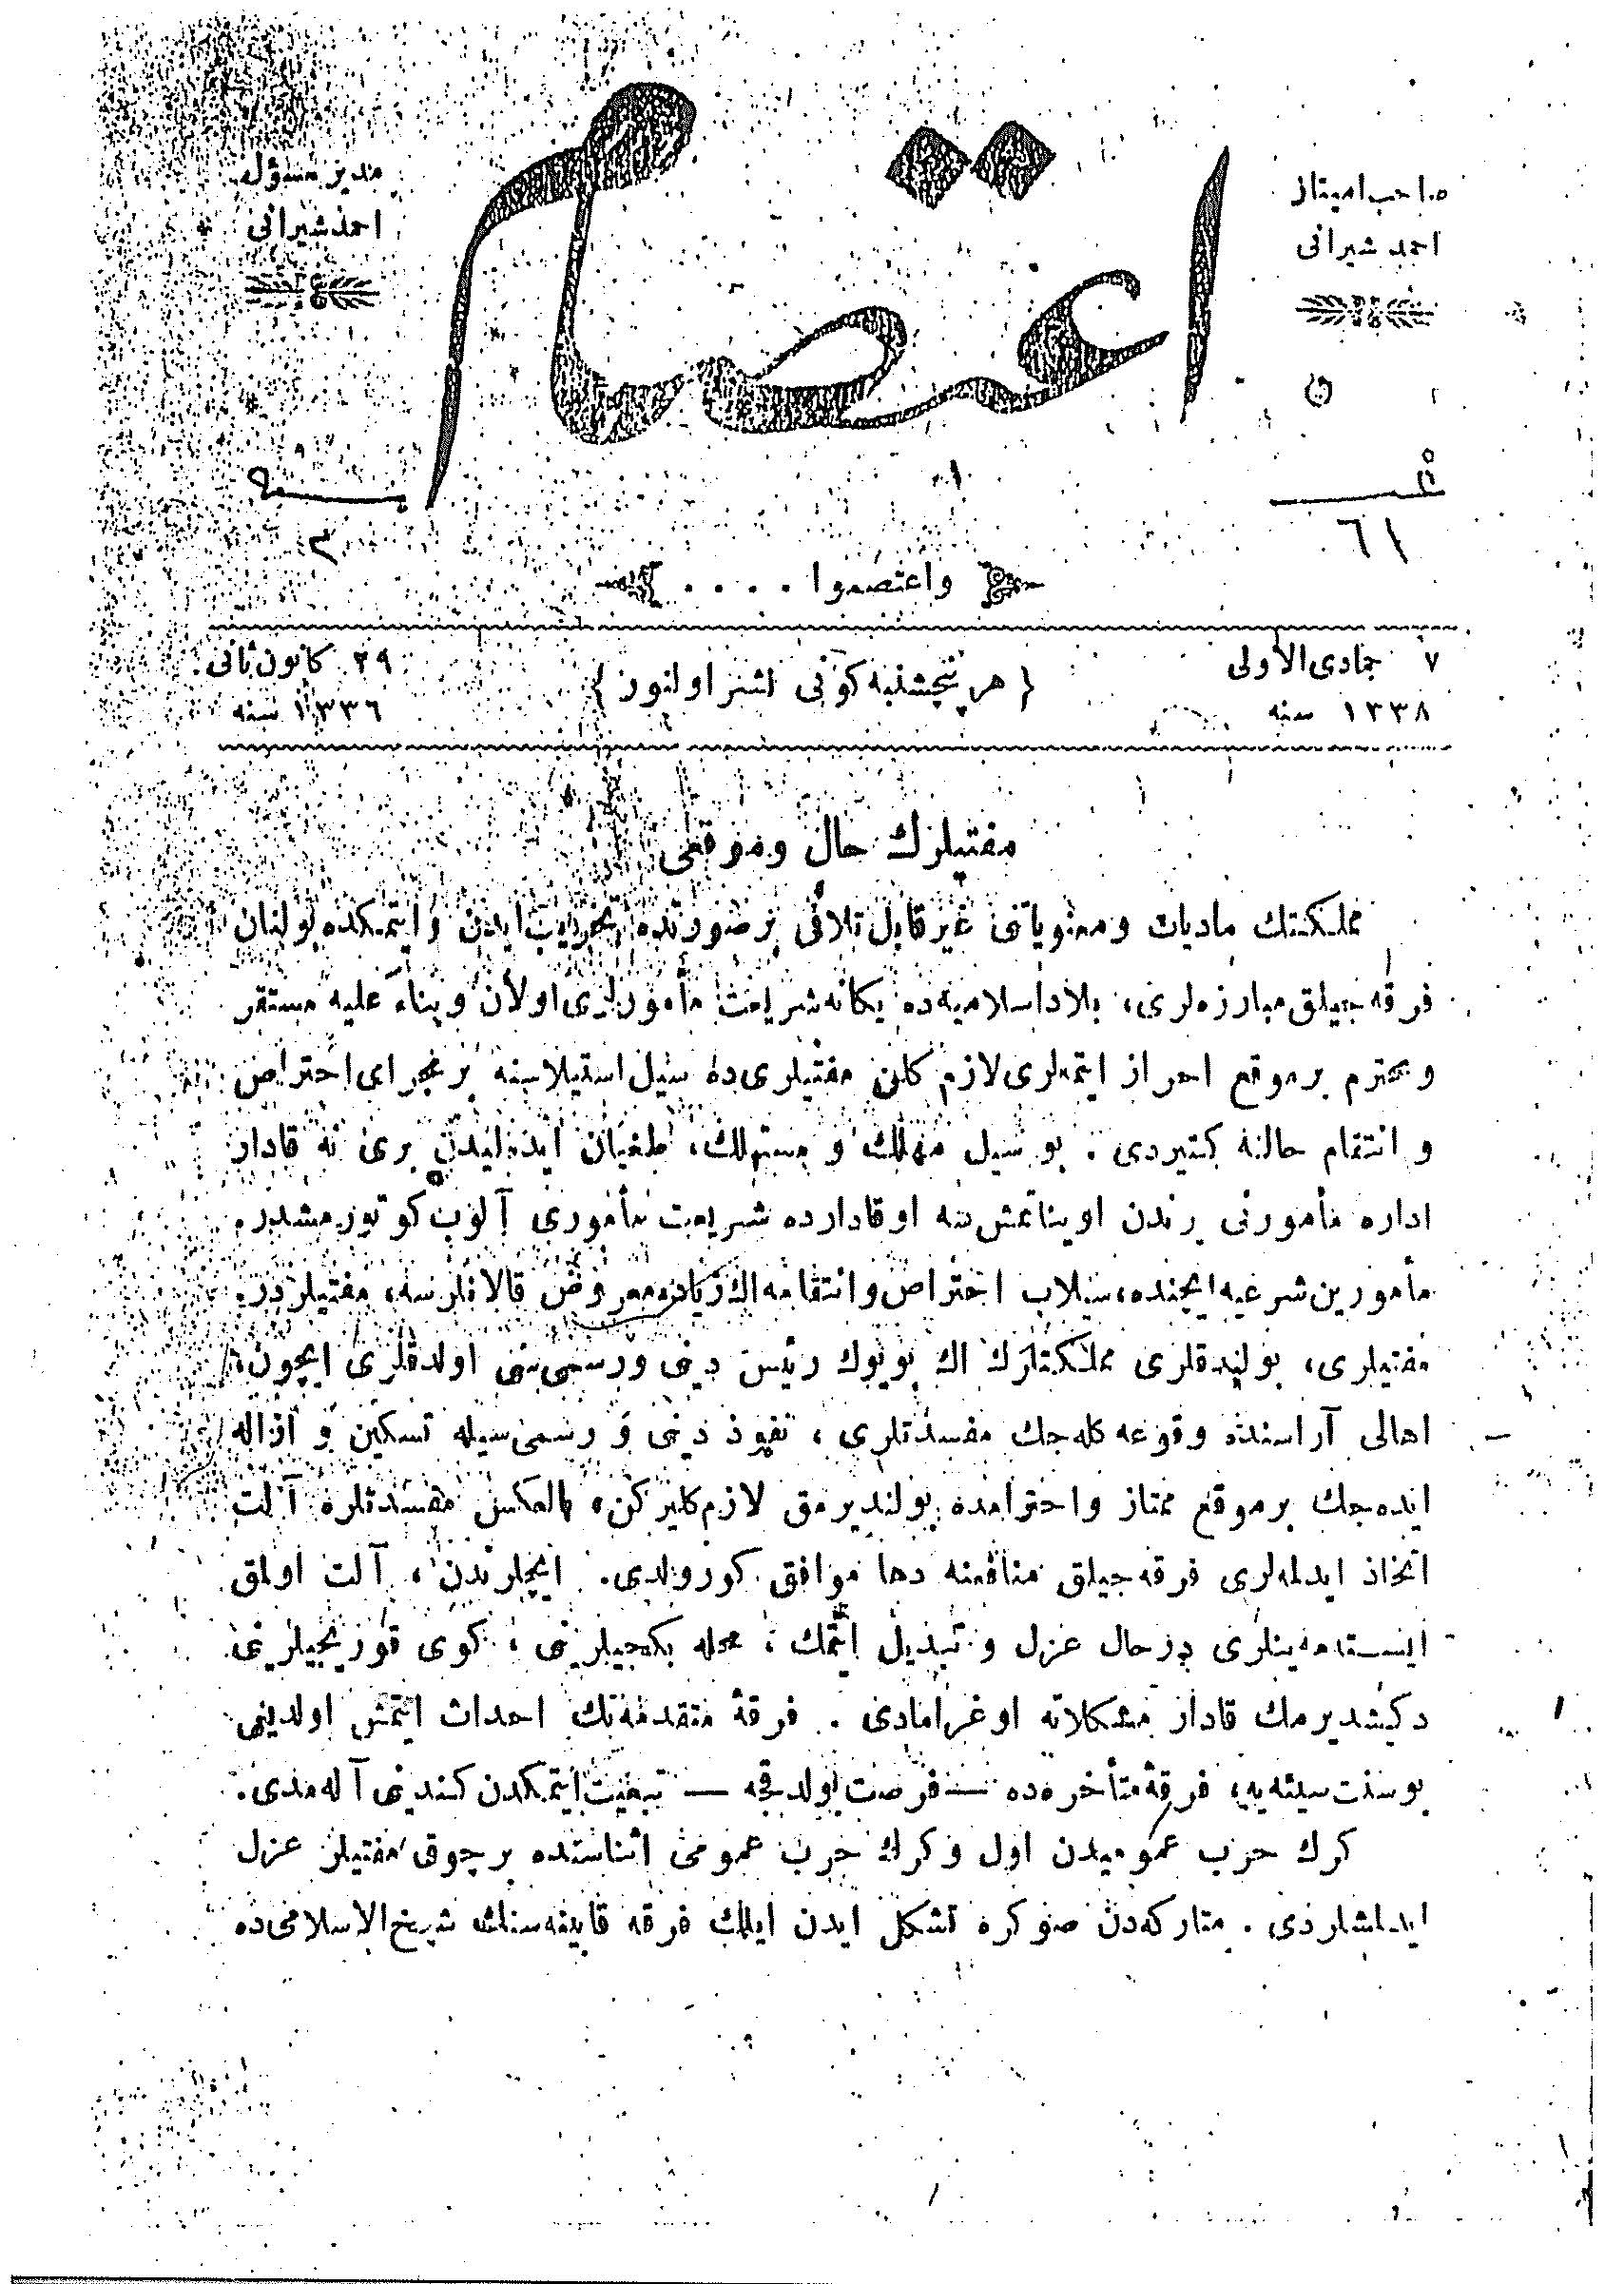 صاحب امتیاز
احمد شیرانی
اعتصام
مدیر مسؤل
احمد شیرانی
٦١
٣
واعتصموا . . . .
٧ جمادی الاولی
١٣٣٨ سنه
{ هر پنجشنبه کونی نشر اولنور }
٢٩ کانون ثانی
١٣٣٦ سنه
مفتیلرك حال وموقعی
مملکتك مادیات ومعنویاتنی غیر قابل تلافی بر صورتده تخریب ایدن وایتمکده بولنان
فرقه جیلق مبارزه لری، بلاد اسلامیه ده یکانه شریعت مأمورلری اولان وبناءً علیه مستقر
ومحترم بر موقع احراز ایتمه لری لازم کلن مفتیلری ده سیل استیلاسنه بر مجرای احتراص
و انتقام حالنه کتیردی . بو سیل مهلك و مستهلك، طغیان ایده لیدن بری نه قادار
اداره مأمورنی یرندن اویناتمش سه او قادارده شریعت مأموری آلوب کوتورمشدر.
مأمورین شرعیه ایچنده، سیلاب احتراص وانتقامه اك زیاده معروض قالانلرسه، مفتیلردر.
مفتیلری، بولندقلری مملکتلرك اك بویوك رئیس دینی ورسمی سی اولدقلری ایچون،
اهالی آراسنده وقوعه کله جك مفسدتلری ، نفوذ دینی و رسمی سیله تسکین و ازاله
ایده جك بر موقع ممتاز واحترامده بولندیرمق لازم کلیرکن، بالعکس مفسدتلره آلت
اتخاذ ایدلمه لری فرقه جیلق منافعنه دها موافق کورولدی. ایچلرندن ، آلت اولمق
ایسته مه ینلری درحال عزل و تبدیل ایتمك ، محله بکجیلرینی ، کوی قوریجیلرینی
دکیشدیرمك قادار مشکلاته اوغرامادی . فرقهٔ متقدمه نك احداث ایتمش اولدیغی
بو سنت سیئه یه، فرقهٔ متأخره ده — فرصت بولدقجه — تبعیت ایتمکدن کندینی آله مدی.
کرك حرب عمومیدن اول وکرك حرب عمومی اثناسنده بر چوق مفتیلر عزل
ایدلمشلردی . متارکه دن صوکره تشکل ایدن ایلك فرقه قابینه سنك شیخ الاسلامی ده